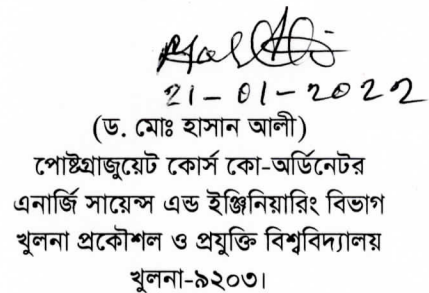 21-01-2022
(ড. মোঃ হাসান আলী)
পোষ্টগ্রাজুয়েট কোর্স কো-অর্ডিনেটর
এনার্জি সায়েন্স এন্ড ইঞ্জিনিয়ারিং বিভাগ
খুলনা প্রকৌশল ও প্রযুক্তি বিশ্ববিদ্যালয়
খুলনা-৯২০৩।